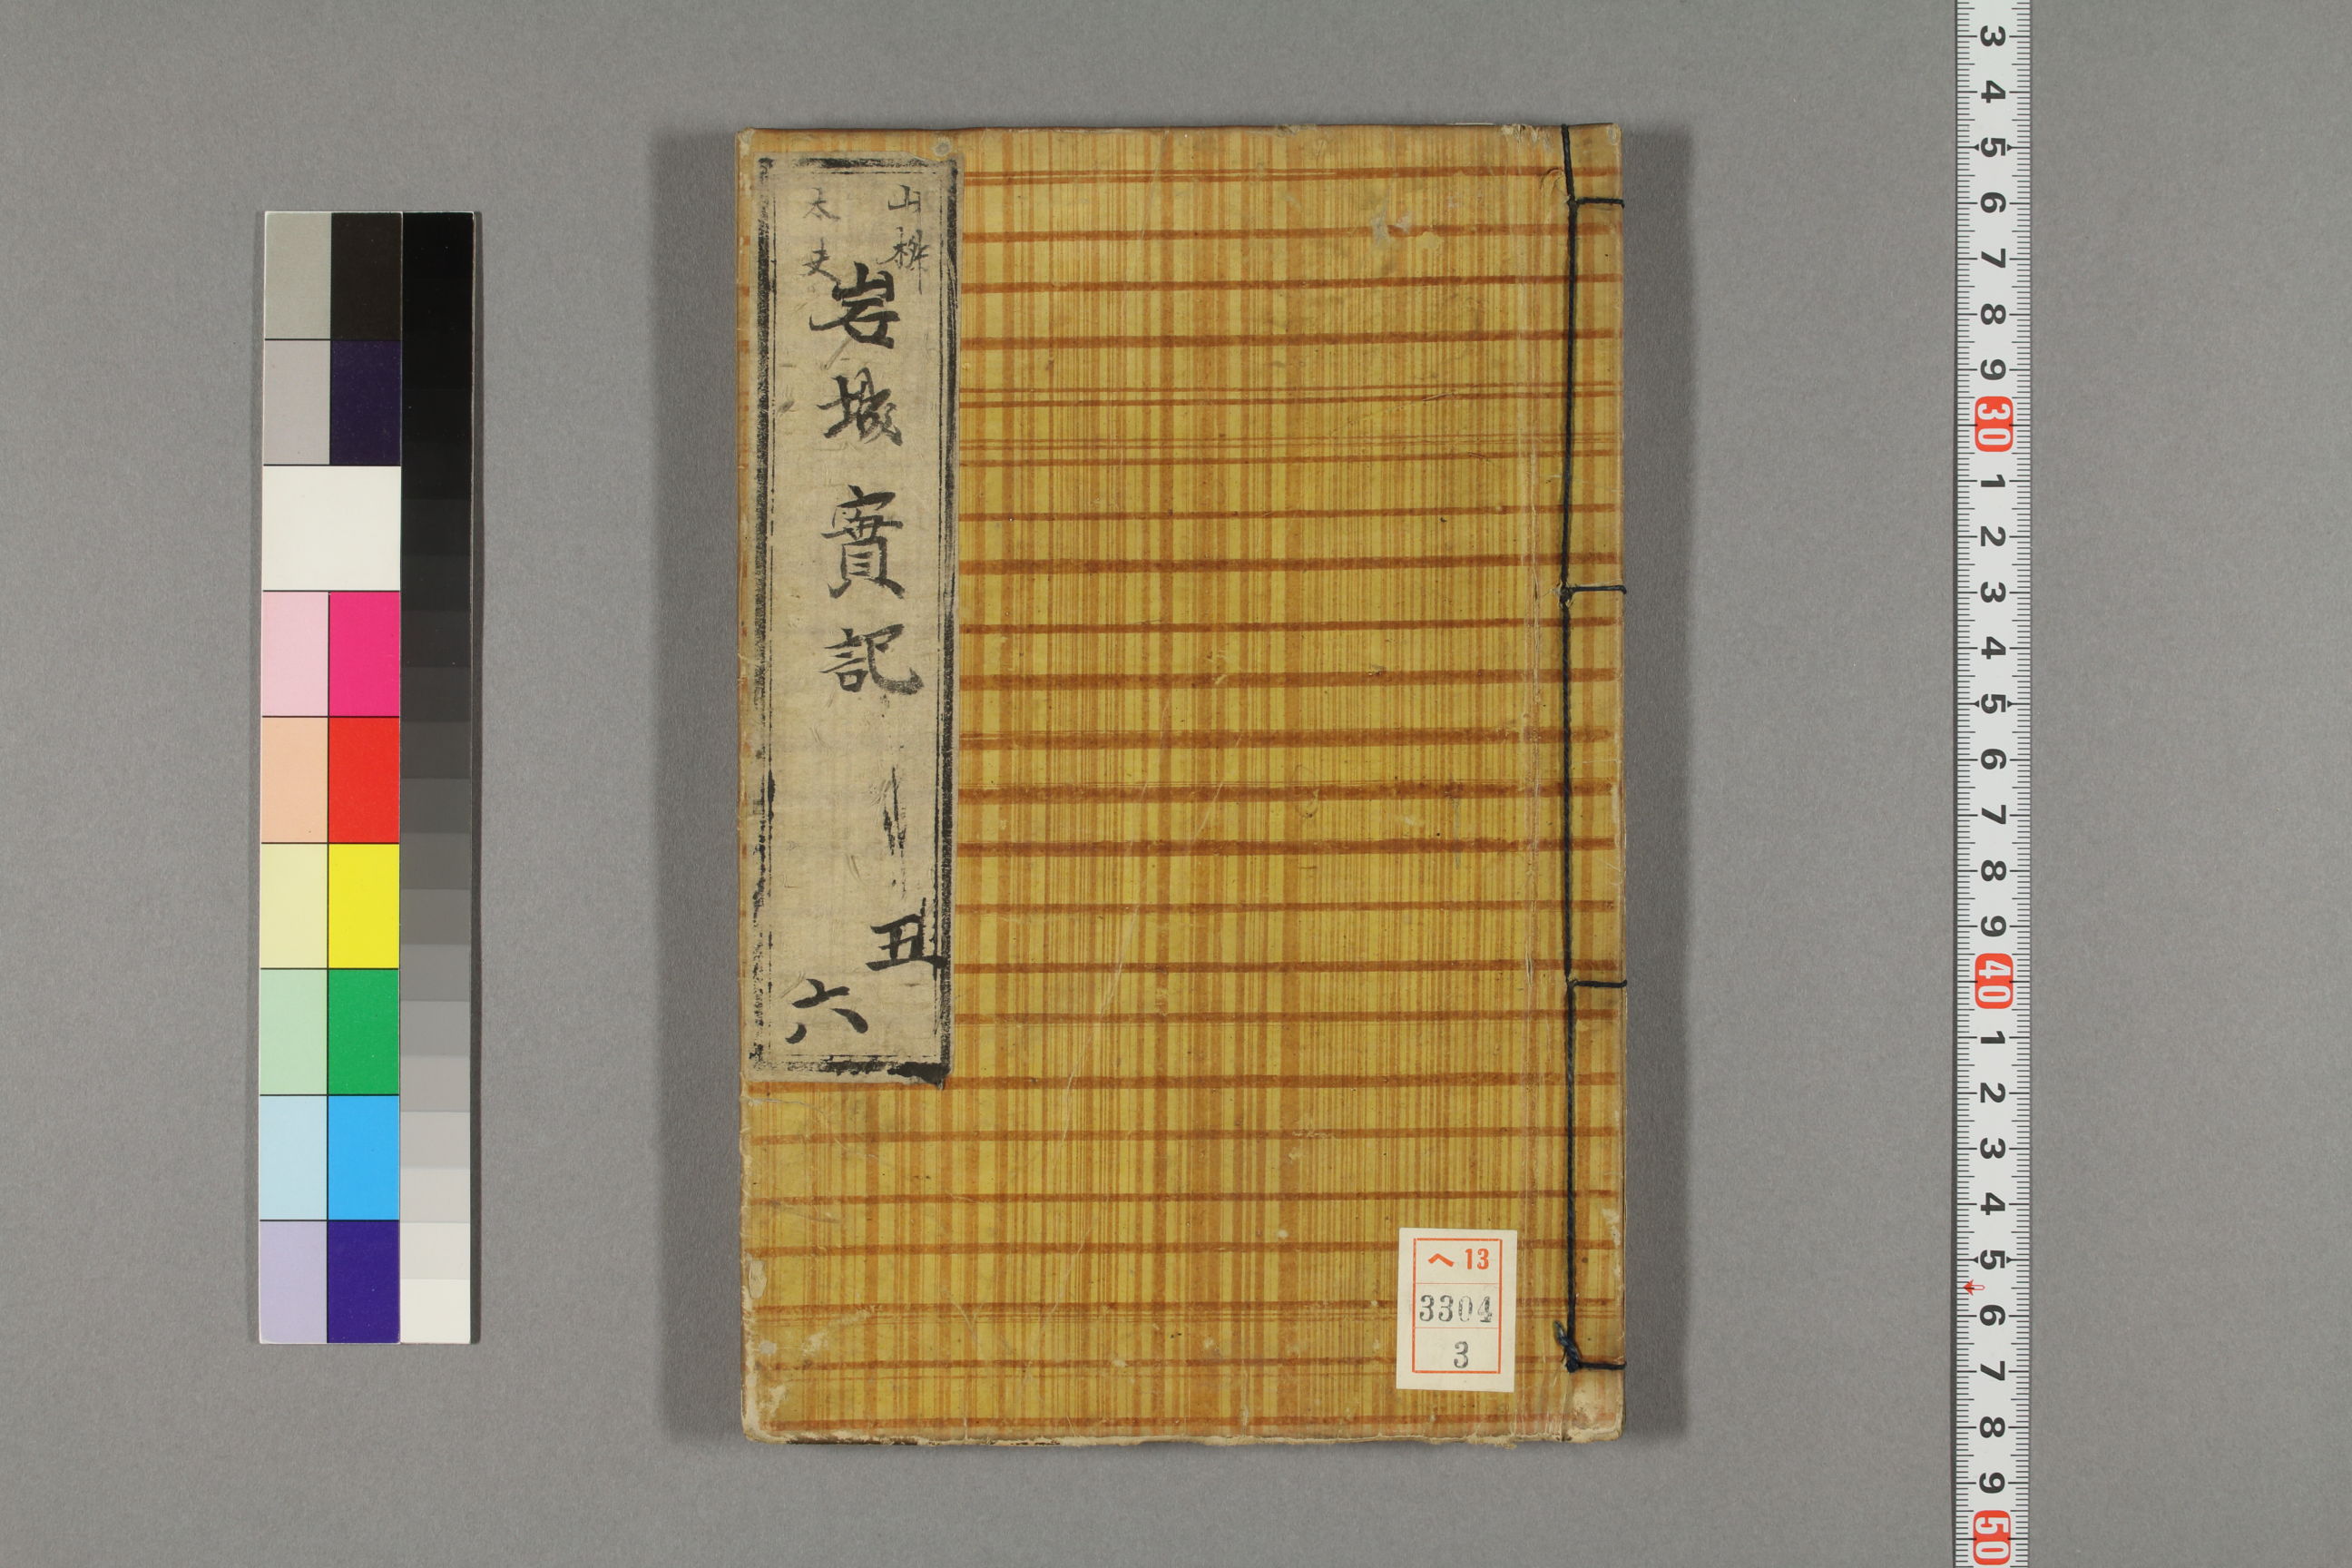 山椒
太夫
岩城實記
五
六
ヘ13
3304
3
3 4 5 6 7 8 9 30 1 2 3 4 5 6 7 8 9 40 1 2 3 4 5 6 7 8 9 50